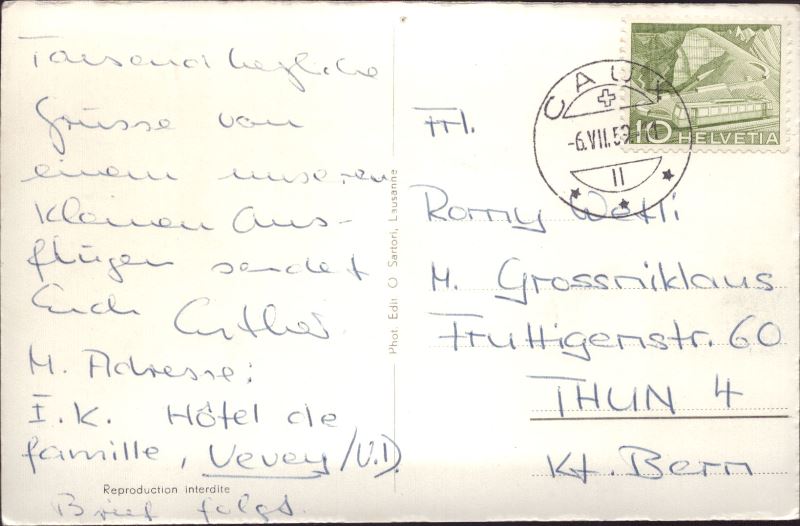 Tausend herzliche
Grüsse von
einem unseren
kleinen Aus-
flügen sendet
Euch
M. Adresse:
I.K. Hôtel de
famille, Vevey/V.D.
Brief folgt.
Reproduction interdite
Phot. Edit O Sartori, Lausanne
CAUX
-6.VII.59
II
10 HELVETIA
Frl.
Romy Wetli
M. Grossniklaus
Fruttigenstr. 60
THUN 4
Kt. Bern